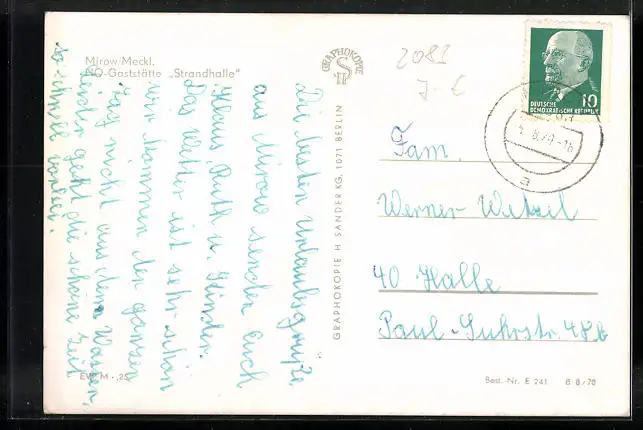 Mirow/Meckl.
HO-Gaststätte „Strandhalle"
Die besten Urlaubsgrüße
aus Mirow senden Euch
Klaus, Ruth u. Kinder.
Das Wetter ist sehr schön
wir kommen den ganzen
Tag nicht aus dem Wasser,
leider geht die schöne Zeit
so schnell vorbei.
EVP M -,25
GRAPHOKOPIE
H S
GRAPHOKOPIE H SANDER KG, 1071 BERLIN
2081
J-E
DEUTSCHE
DEMOKRATISCHE REPUBLIK
10
a
Fam.
Werner Wetzel
40 Halle
Paul-Suhrstr. 48b
Best. Nr. E 241 B 8/70